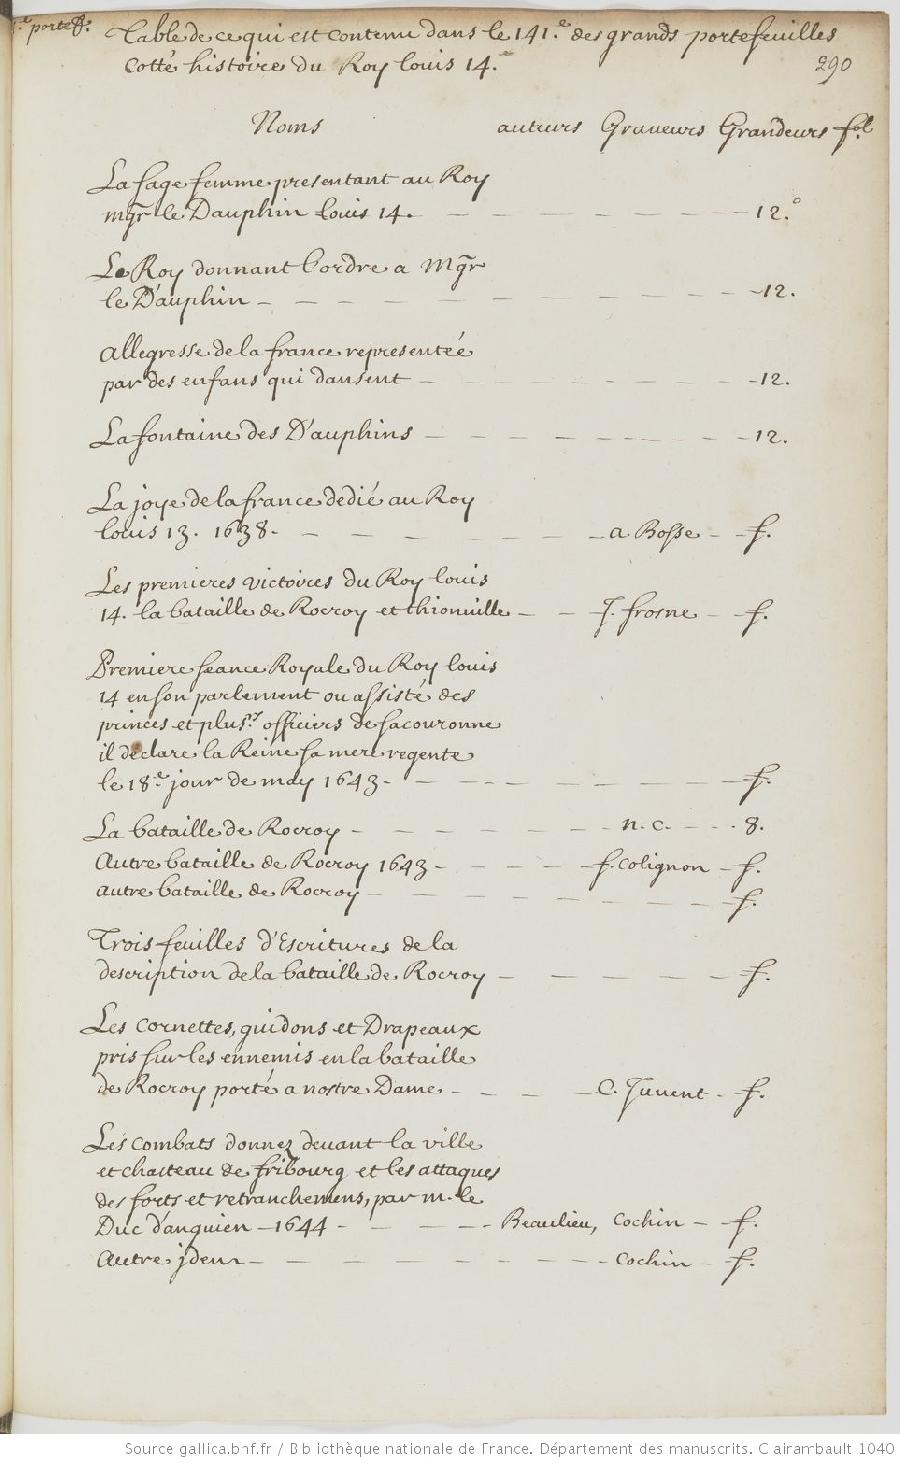 portef.
Table de ce qui est contenu dans le 141.e des grands portefeuilles
cotté histoire du Roy louis 14.e
290
Noms auteurs Graveurs Grandeurs fol
La sage femme presentant au Roy
mgr le Dauphin louis 14. — — — — — — 12.o
Le Roy donnant l'ordre a Mgr
le Dauphin — — — — — — — — 12.
Allegresse de la france representée
par des enfans qui dansent — — — — — 12.
La fontaine des Dauphins — — — — — 12.
La joye de la france dedié au Roy
louis 13. 1638. — — — — — a Bosse — f.
Les premieres victoires du Roy louis
14. la bataille de Rocroy et thionuille — — J. frosne — f.
Premiere seance Royale du Roy louis
14 en son parlement ou assisté des
princes et plusrs officiers de sa couronne
il declare la Reine sa mere regente
le 18.e jour de may 1643 — — — — — — f.
La bataille de Rocroy — — — — — n. c. — — 8.
Autre bataille de Rocroy 1643 — — — — f. Colignon — f.
autre bataille de Rocroy — — — — — — f.
Trois feuilles d'Escritures de la
description de la bataille de Rocroy — — — — — f.
Les cornettes, guidons et Drapeaux
pris sur les ennemis en la bataille
de Rocroy porté a nostre Dame — — — — C. Juuent — f.
Les combats donnez deuant la ville
et chasteau de fribourg et les attaques
des forts et retranchemens, par m. le
Duc d'anguien — 1644 — — — — Beaulieu, Cochin — f.
Autre jdem — — — — — — — Cochin — f.
Source gallica.bnf.fr / Bibliothèque nationale de France. Département des manuscrits. Clairambault 1040